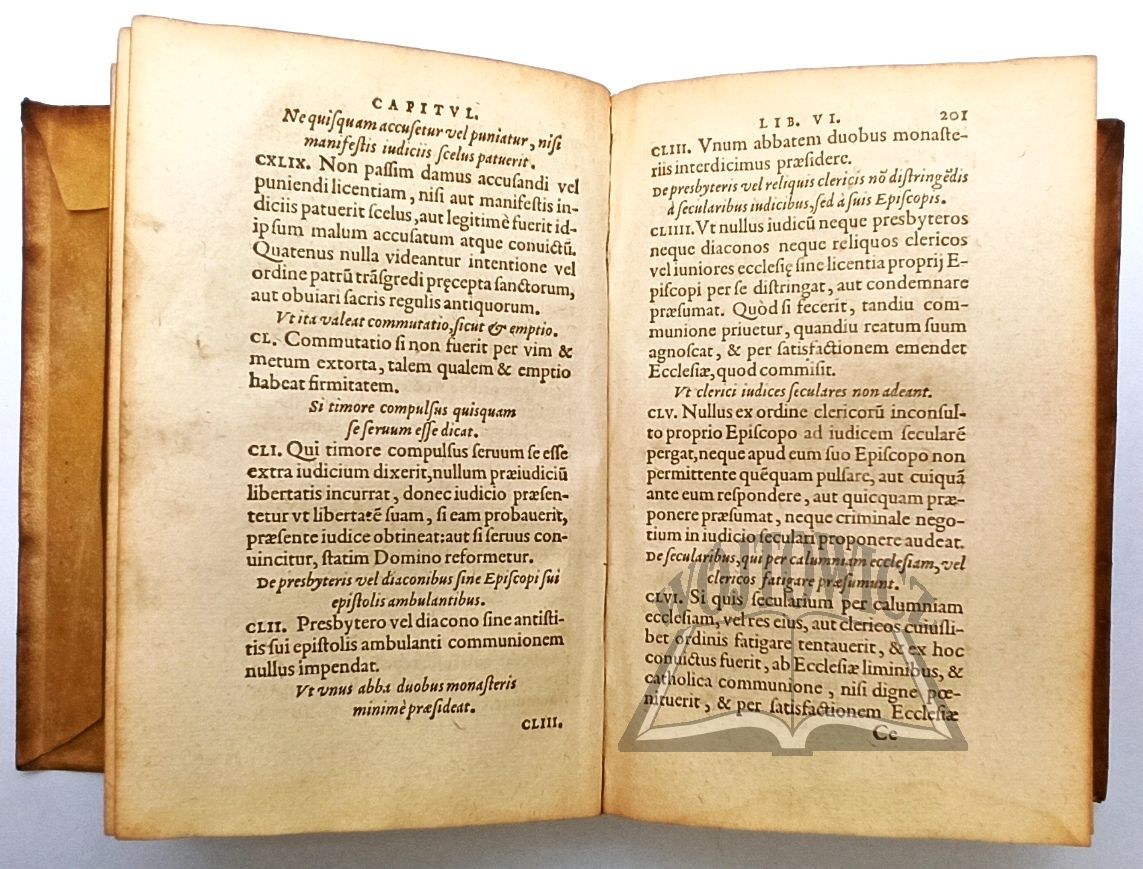 CAPITVL.
Ne quiſquam accuſetur vel puniatur, niſi
manifeſtis iudiciis ſcelus patuerit.
CXLIX. Non paſſim damus accuſandi vel
puniendi licentiam, niſi aut manifeſtis in-
diciis patuerit ſcelus, aut legitimè fuerit id-
ipſum malum accuſatum atque conuictũ.
Quatenus nulla videantur intentione vel
ordine patrũ trãſgredi pręcepta ſanctorum,
aut obuiari ſacris regulis antiquorum.
Vt ita valeat commutatio, ſicut & emptio.
CL. Commutatio ſi non fuerit per vim &
metum extorta, talem qualem & emptio
habeat firmitatem.
Si timore compulſus quisquam
ſe ſeruum eſſe dicat.
CLI. Qui timore compulſus ſeruum ſe eſſe
extra iudicium dixerit, nullum præiudiciũ
libertatis incurrat, donec iudicio præſen-
tetur vt libertatẽ ſuam, ſi eam probauerit,
præſente iudice obtineat: aut ſi ſeruus con-
uincitur, ſtatim Domino reformetur.
De presbyteris vel diaconibus ſine Epiſcopi ſui
epiſtolis ambulantibus.
CLII. Presbytero vel diacono ſine antiſti-
tis ſui epiſtolis ambulanti communionem
nullus impendat.
Vt vnus abba duobus monaſteris
minimè præſideat.
CLIII.
LIB. VI. 201
CLIII. Vnum abbatem duobus monaſte-
riis interdicimus præſidere.
De presbyteris vel reliquis clericis nõ diſtringẽdis
à ſecularibus iudicibus, ſed à ſuis Epiſcopis.
CLIIII. Vt nullus iudicũ neque presbyteros
neque diaconos neque reliquos clericos
vel iuniores eccleſię ſine licentia proprij E-
piſcopi per ſe diſtringat, aut condemnare
præſumat. Quòd ſi fecerit, tandiu com-
munione priuetur, quandiu reatum ſuum
agnoſcat, & per ſatisfactionem emendet
Eccleſiæ, quod commiſit.
Vt clerici iudices ſeculares non adeant.
CLV. Nullus ex ordine clericorũ inconſul-
to proprio Epiſcopo ad iudicem ſecularẽ
pergat, neque apud eum ſuo Epiſcopo non
permittente quẽquam pulſare, aut cuiquã
ante eum reſpondere, aut quicquam præ-
ponere præſumat, neque criminale nego-
tium in iudicio ſeculari proponere audeat.
De ſecularibus, qui per calumniam eccleſiam, vel
clericos fatigare præſumunt.
CLVI. Si quis ſecularium per calumniam
eccleſiam, vel res eius, aut clericos cuiuſli-
bet ordinis fatigare tentauerit, & ex hoc
conuictus fuerit, ab Eccleſiæ liminibus, &
catholica communione, niſi digne pœ-
nituerit, & per ſatisfactionem Eccleſiæ
Cc
WOJTOWICZ